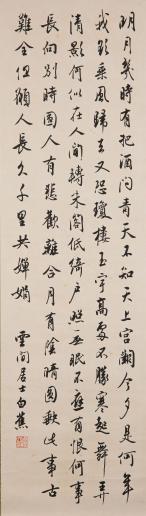 明月幾時有把酒問青天不知天上宮闕今夕是何年
我欲乘風歸去又恐瓊樓玉宇高處不勝寒起舞弄
清影何似在人間轉朱閣低綺戶照無眠不應有恨何事
長向別時圓人有悲歡離合月有陰晴圓缺此事古
難全但願人長久千里共嬋娟 雲間居士白蕉